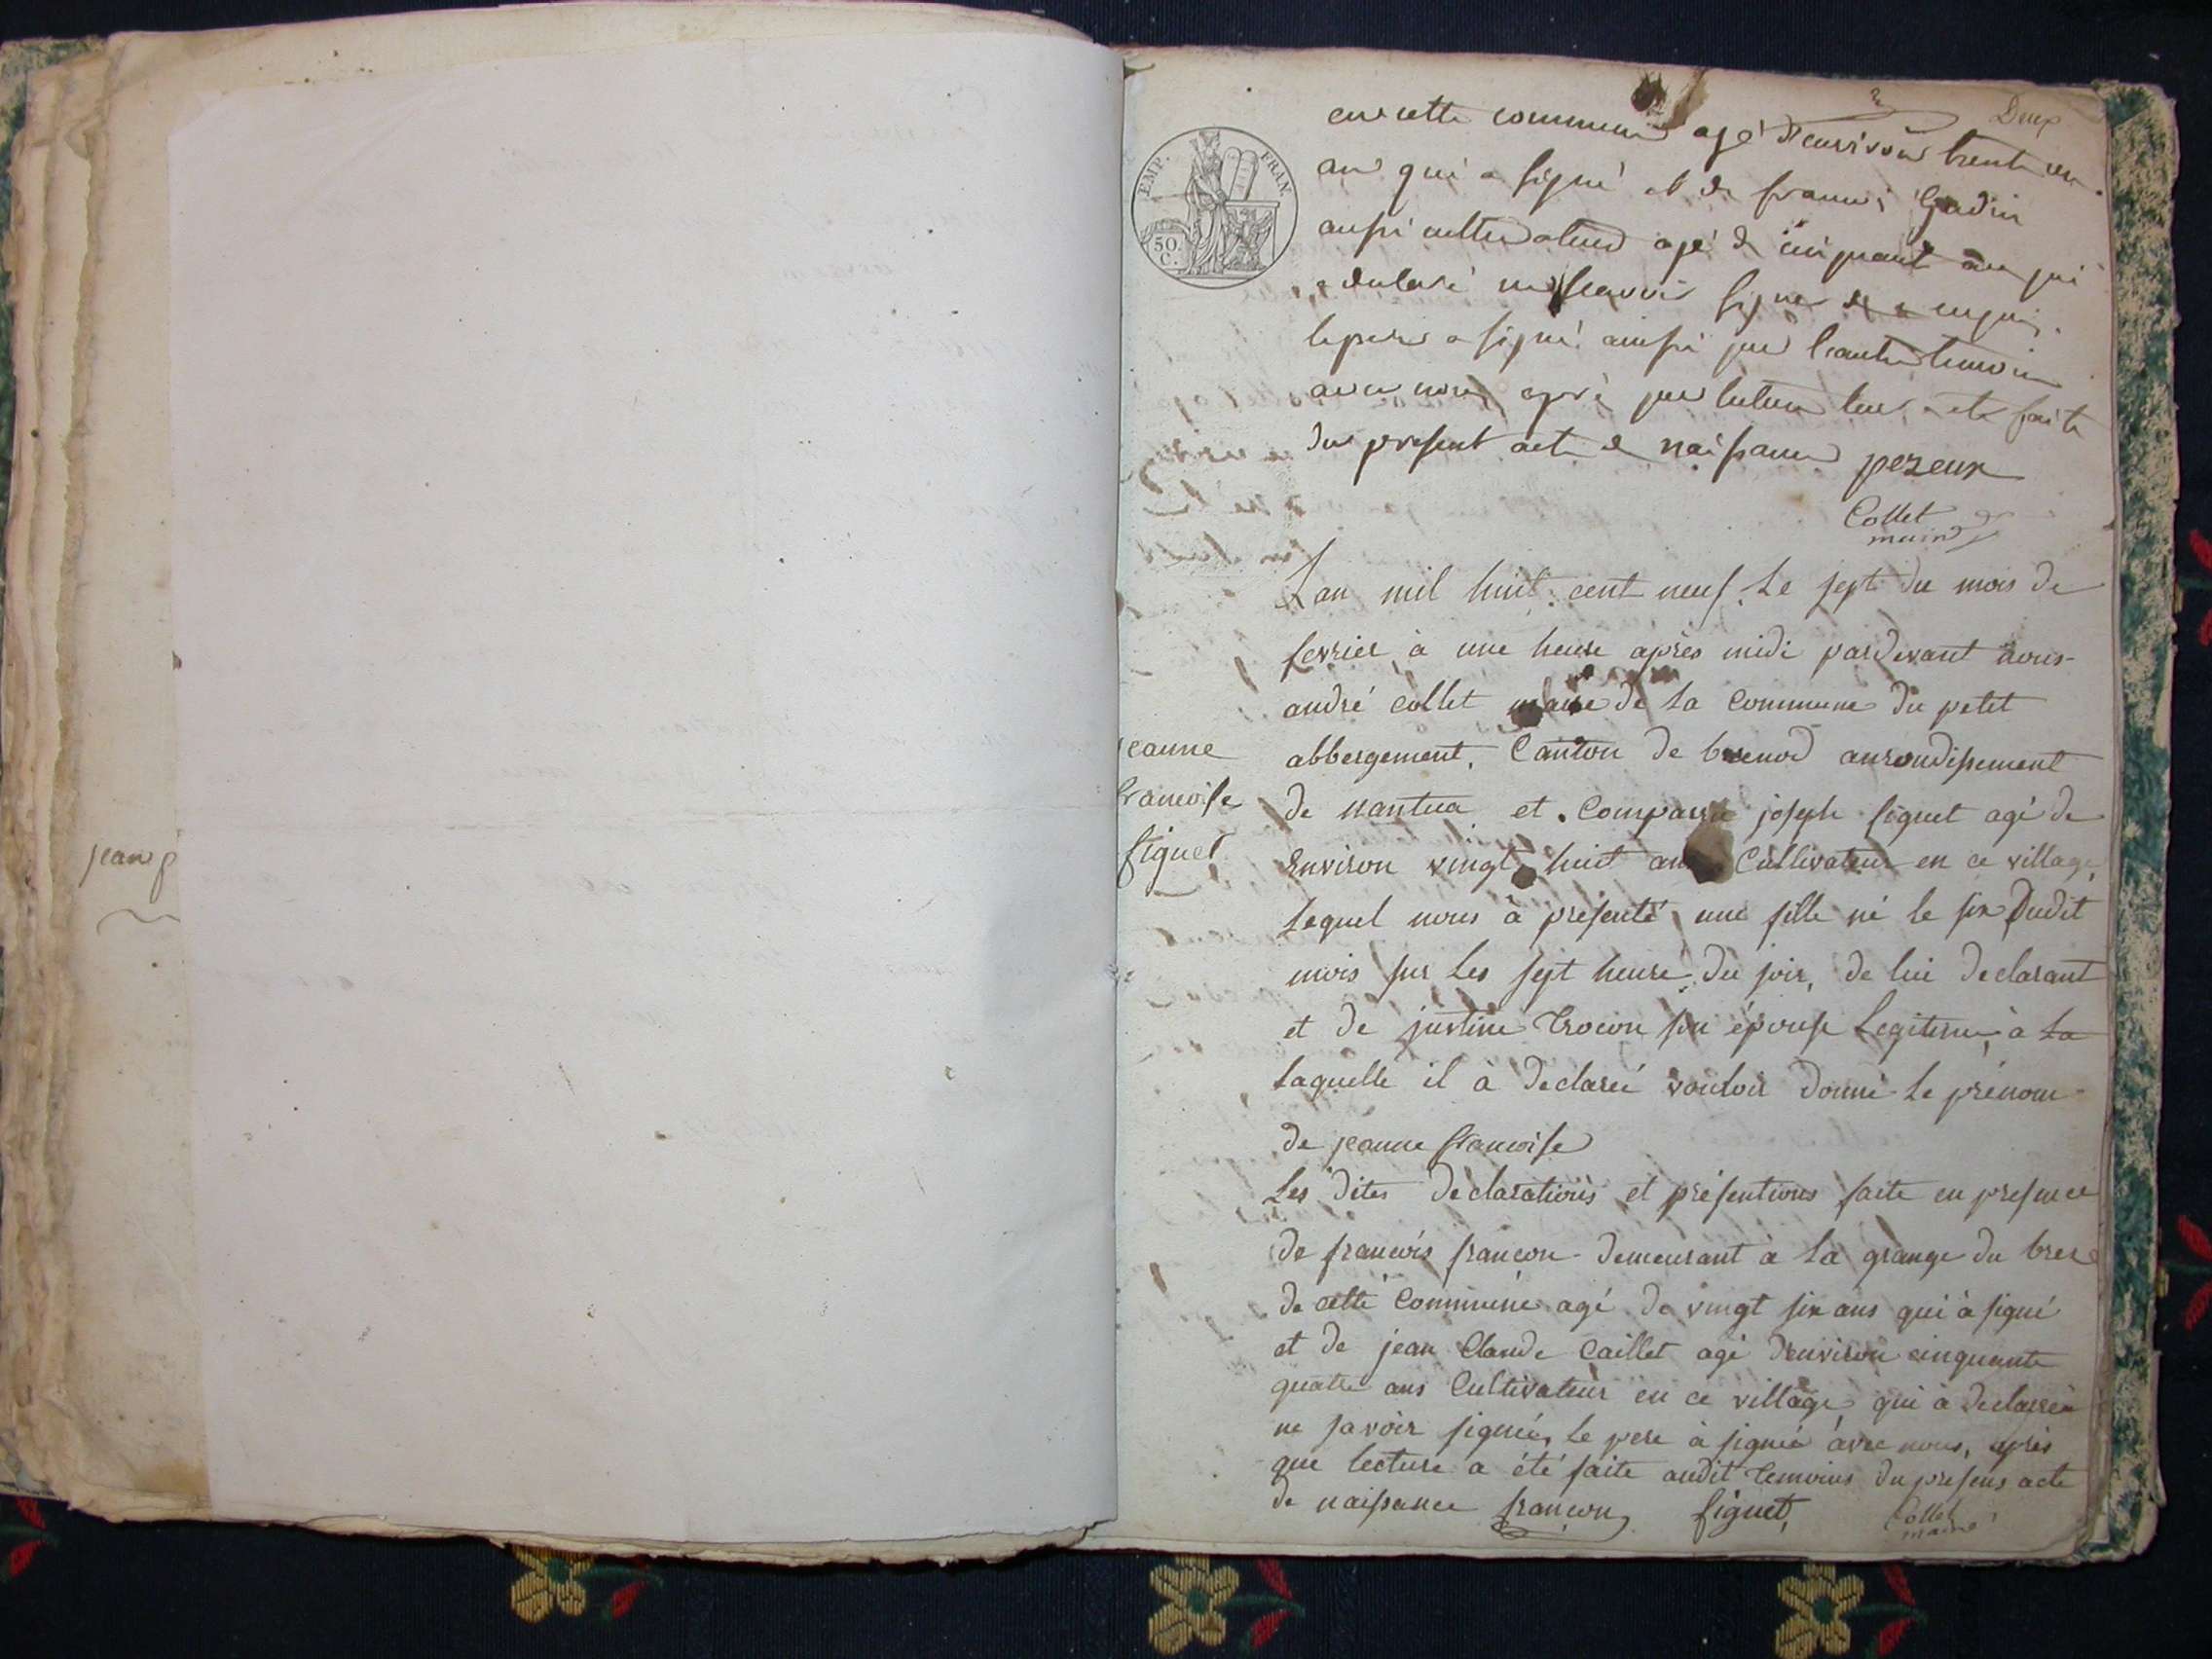 jean p
Deux
EMP. FRAN.
50.
C.
en cette commune agé d'environ trente un
an qui a signé et de francois Gadin
aussi cultivateur agé de cinquante an qui
a declaré ne scavoir signer
le pere a signé ainsi que l'autre temoin
avec nous après que lecture leur a ete faite
du present acte de naissance pezeux
Collet
maire
L'an mil huit cent neuf. Le sept du mois de
fevrier, à une heure après midi pardevant nous
andré collet maire de la Commune du petit
abbergement, Canton de brenod anrondissement
de nantua et. Comparu joseph figuet agé de
Environ vingt huit ans Cultivateur en ce village,
Lequel nous à presenté une fille né le six Dudit
mois sur les sept heure du soir, de lui declarant
et de justine Trocon son épouse legitime, à la
laquelle il à declareé vouloir donné le prénom
de jeanne francoise
jeanne
francoise
figuet
Les dites declarations et présentions faite en presence
de francois francon demeurant à la grange du
de cette Commune agé de vingt six ans qui à signé
et de jean Claude Caillet agé d'environ cinquante
quatre ans Cultivateur en ce village qui à declareé
ne savoir signeé, le pere à signeé avec nous, après
que lecture a été faite audit temoins du presens acte
de naissance françon figuet, Collet
maire